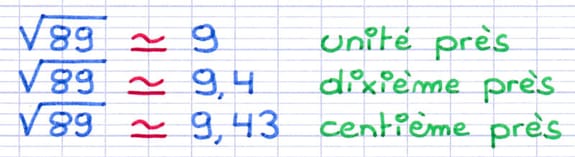 √89 ≃ 9 unité près
√89 ≃ 9,4 dixième près
√89 ≃ 9,43 centième près